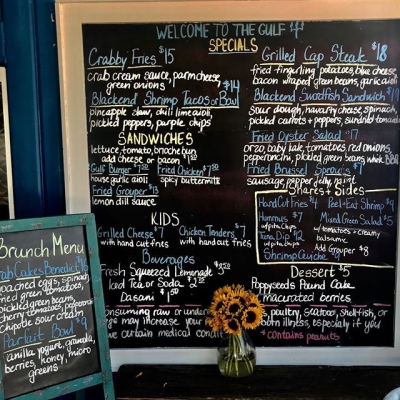 WELCOME TO THE GULF
SPECIALS
Crabby Fries $15
crab cream sauce, parm cheese,
green onions
Blackend Shrimp Tacos or Bowl $14
pineapple slaw, chili lime aioli,
pickled peppers, purple chips
SANDWICHES
lettuce, tomato, brioche bun
add cheese or bacon $1
Gulf Burger $7
house garlic aioli
Fried Chicken $7
spicy buttermilk
Fried Grouper $13
lemon dill sauce
KIDS
Grilled Cheese $7
with hand cut fries
Chicken Tenders $7
with hand cut fries
Beverages
Fresh Squeezed Lemonade
Iced Tea or Soda
Dasani
Grilled Cap Steak $18
fried fingurling potatoes, blue cheese,
bacon wraped green beans, garlic aioli
Blackend Swordfish Sandwich
sour dough, navarry cheese, spinach,
pickled carrots + peppers, sundried tomato
Fried Oyster Salad $17
orzo, baby kale, tomatoes, red onions,
pepperoncini, pickled green beans, BBQ
Fried Brussel Sprouts
sausage, pepper jelly
Shares + Sides
Hand Cut Fries $4
Peel + Eat Shrimp $9
Hummus $7
w/pita chips
Mixed Green Salad $5
w/tomatoes + creamy
balsamic
Tuna Dip $12
w/pita chips
Add Grouper $8
Shrimp Ceviche
Dessert $5
Poppyseeds Pound Cake
macurated berries
consuming raw or under
may increase your
certain medical
poultry, seafood, shellfish, or
illness, especially if you
* contains peanuts
Brunch Menu
Crab Cakes Benedict
poached eggs, spinach,
fried green tomatoes,
pickled green beans,
chipotle sour cream
Parfait Bowl $9
vanilla yogurt, granola,
berries, honey, micro
greens